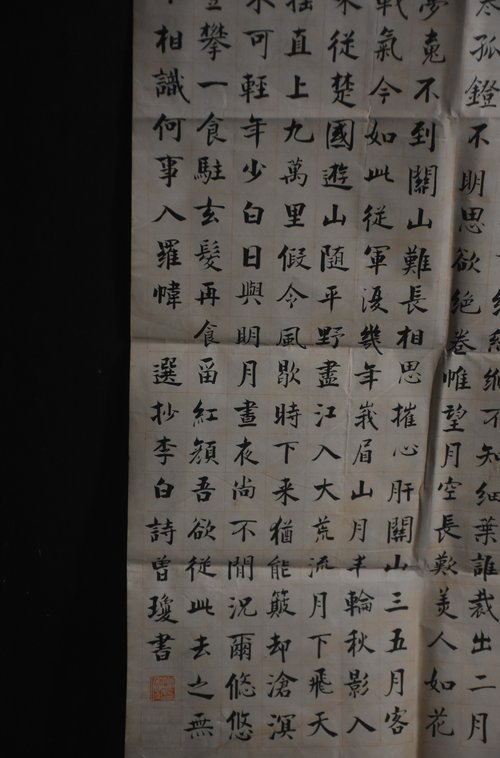 不知細葉誰裁出二月
寒孤鐙不明思欲絕卷帷望月空長歎美人如花
夢魂不到關山難長相思摧心肝關山三五月客
戰氣今如此從軍復幾年峩眉山月半輪秋影入
來從楚國遊山隨平野盡江入大荒流月下飛天
搖直上九萬里假令風歇時下来猶能簸却滄溟
可輕年少白日與明月晝夜尚不閒況爾悠悠
攀一食駐玄髮再食留紅顏吾欲從此去之無
相識何事入羅幃 選抄李白詩曾瓊書